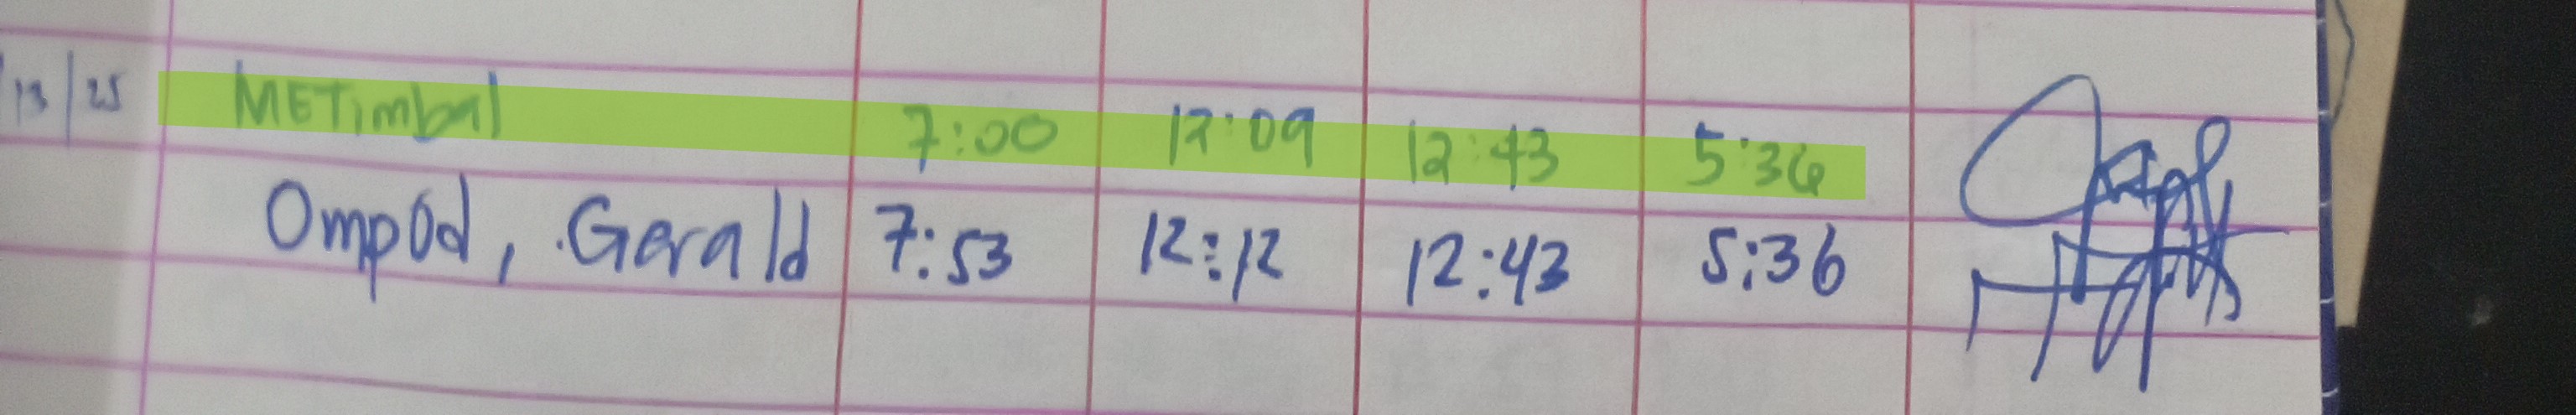 13/25 METimbal 7:00 12:09 12:43 5:36
Ompod, Gerald 7:53 12:12 12:43 5:36